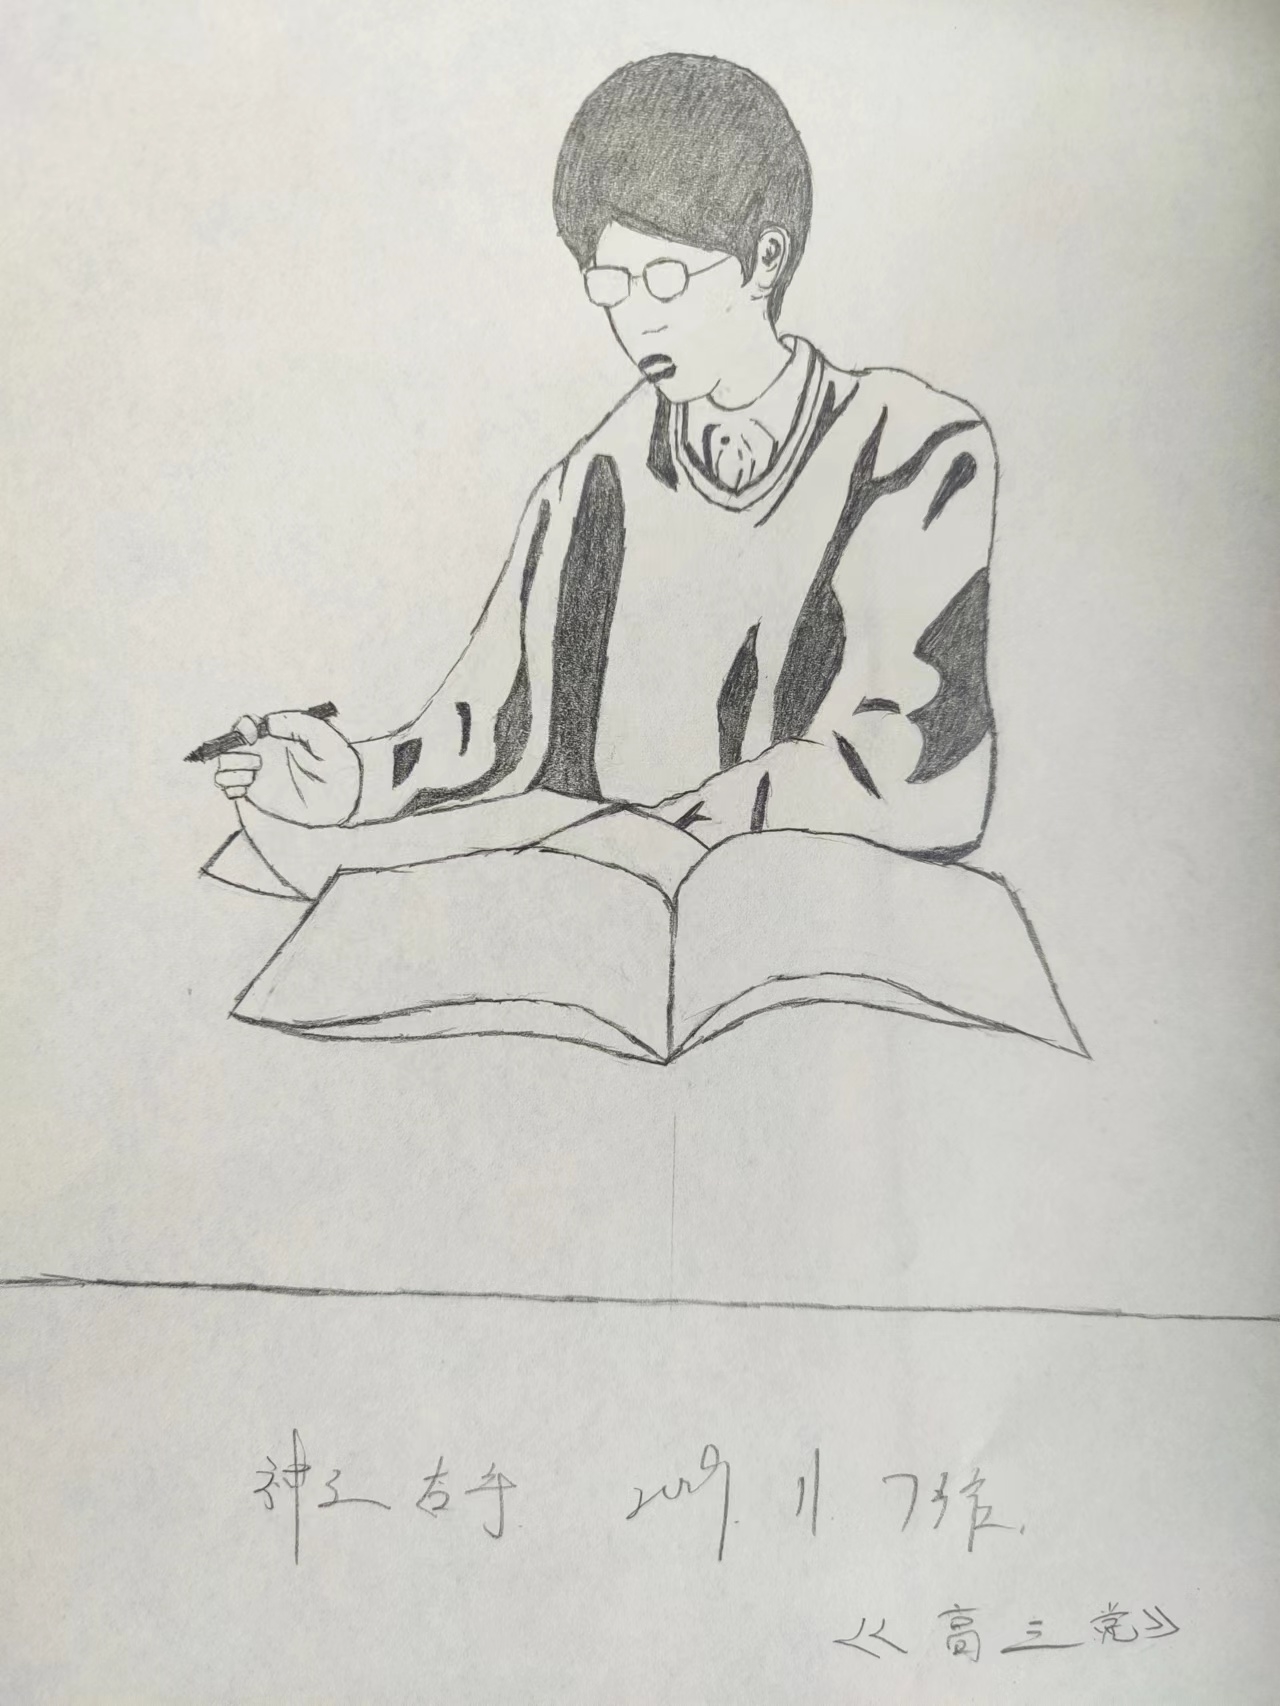 神之右手 2019.11.7 作.
《高三党》